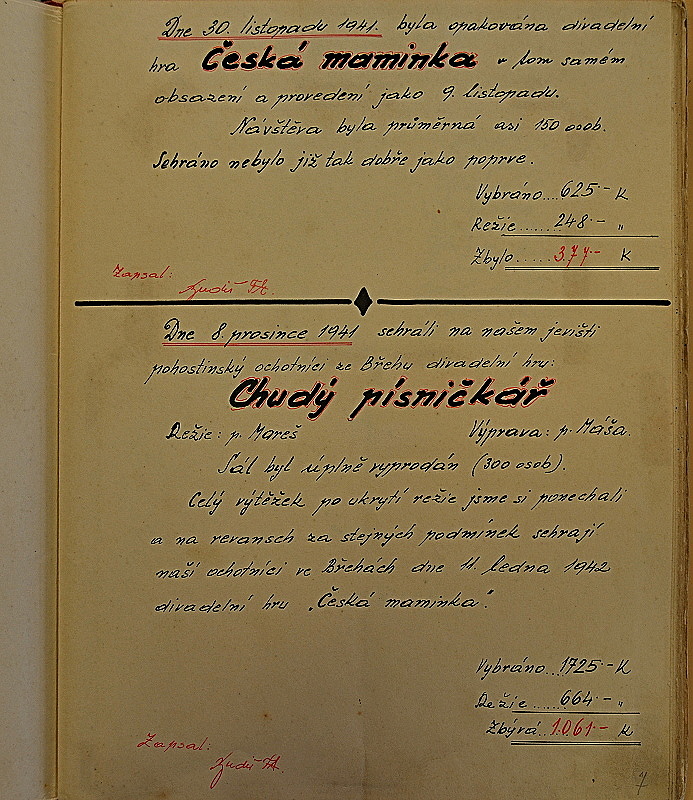 Dne 30. listopadu 1941. byla opakována divadelní
hra Česká maminka v tom samém
obsazení a provedení jako 9. listopadu.
Návštěva byla průměrná asi 150 osob.
Sehráno nebylo již tak dobře jako poprve.
Vybráno...625·- K
Režie......248·- „
Zbylo.....377·- K
Zapsal:
Dne 8. prosince 1941 sehráli na našem jevišti
pohostinský ochotníci ze Břehu divadelní hru:
Chudý písničkář
Režie: p. Mareš Výprava: p. Máša.
Sál byl úplně vyprodán (300 osob).
Celý výtěžek po ukrytí režie jsme si ponechali
a na revansch za stejných podmínek sehrají
naší ochotníci ve Břehách dne 11. ledna 1942
divadelní hru „Česká maminka".
Vybráno...1725·- K
Režie......664·- „
Zbývá..1.061·- K
Zapsal:
7